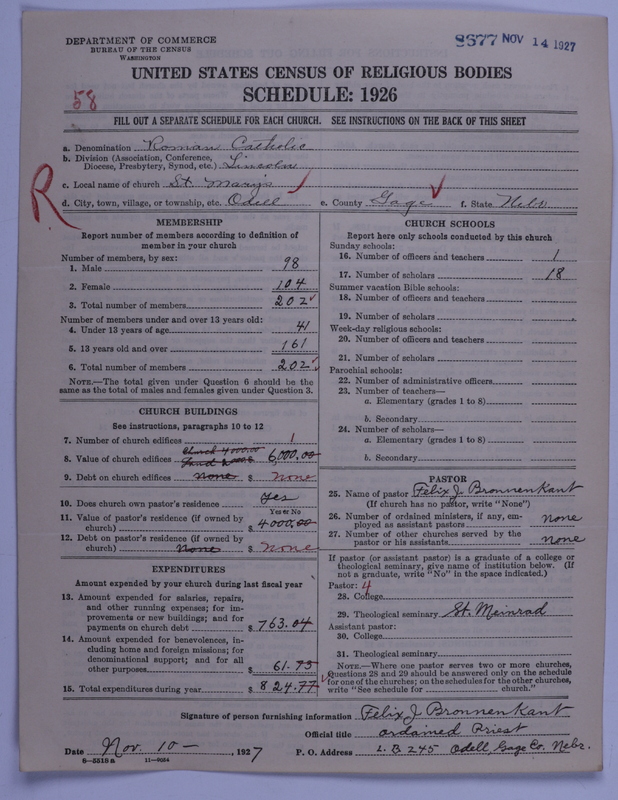 DEPARTMENT OF COMMERCE
BUREAU OF THE CENSUS
WASHINGTON
8677 NOV 14 1927
UNITED STATES CENSUS OF RELIGIOUS BODIES
SCHEDULE: 1926
58
FILL OUT A SEPARATE SCHEDULE FOR EACH CHURCH. SEE INSTRUCTIONS ON THE BACK OF THIS SHEET
R
a. Denomination Roman Catholic
b. Division (Association, Conference, Diocese, Presbytery, Synod, etc.) Lincoln
c. Local name of church St. Mary's
d. City, town, village, or township, etc. Odell e. County Gage f. State Nebr
MEMBERSHIP
Report number of members according to definition of
member in your church
Number of members, by sex:
1. Male 98
2. Female 104
3. Total number of members 202
Number of members under and over 13 years old:
4. Under 13 years of age 41
5. 13 years old and over 161
6. Total number of members 202
NOTE.—The total given under Question 6 should be the
same as the total of males and females given under Question 3.
CHURCH BUILDINGS
See instructions, paragraphs 10 to 12
7. Number of church edifices 1
Church 4000.00
8. Value of church edifices 6,000.00
9. Debt on church edifices none $ none
10. Does church own pastor's residence yes
Yes or No
11. Value of pastor's residence (if owned by
church) $ 4000.00
12. Debt on pastor's residence (if owned by
church) None $ None
EXPENDITURES
Amount expended by your church during last fiscal year
13. Amount expended for salaries, repairs,
and other running expenses; for im-
provements or new buildings; and for
payments on church debt $ 763.04
14. Amount expended for benevolences, in-
cluding home and foreign missions; for
denominational support; and for all
other purposes $ 61.73
15. Total expenditures during year $ 824.77
CHURCH SCHOOLS
Report here only schools conducted by this church
Sunday schools:
16. Number of officers and teachers 1
17. Number of scholars 18
Summer vacation Bible schools:
18. Number of officers and teachers
19. Number of scholars
Week-day religious schools:
20. Number of officers and teachers
21. Number of scholars
Parochial schools:
22. Number of administrative officers
23. Number of teachers—
a. Elementary (grades 1 to 8)
b. Secondary
24. Number of scholars—
a. Elementary (grades 1 to 8)
b. Secondary
PASTOR
25. Name of pastor Felix J. Bronnenkant
(If church has no pastor, write "None")
26. Number of ordained ministers, if any, em-
ployed as assistant pastors none
27. Number of other churches served by the
pastor or his assistants none
If pastor (or assistant pastor) is a graduate of a college or
theological seminary, give name of institution below. (If
not a graduate, write "No" in the space indicated.)
Pastor: 4
28. College
29. Theological seminary St. Meinrad
Assistant pastor:
30. College
31. Theological seminary
NOTE.—Where one pastor serves two or more churches,
Questions 28 and 29 should be answered only on the schedule
for one of the churches; on the schedules for the other churches,
write "See schedule for church."
Signature of person furnishing information Felix J. Bronnenkant
Official title ordained Priest
Date Nov. 10 - , 1927 P. O. Address L. B 245 Odell, Gage Co. Nebr.
8—5518 a 11—9054